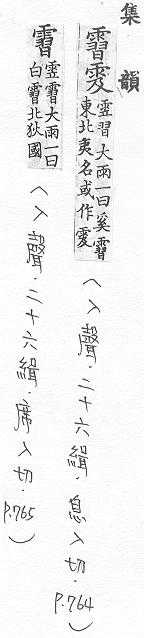 集韻
霫
霫大雨一曰奚霫
東北夷名或作
(入聲.二十六緝.息入切.P.764)
霫
霫大雨一曰
白霫北狄國
(入聲.二十六緝.席入切.P.765)